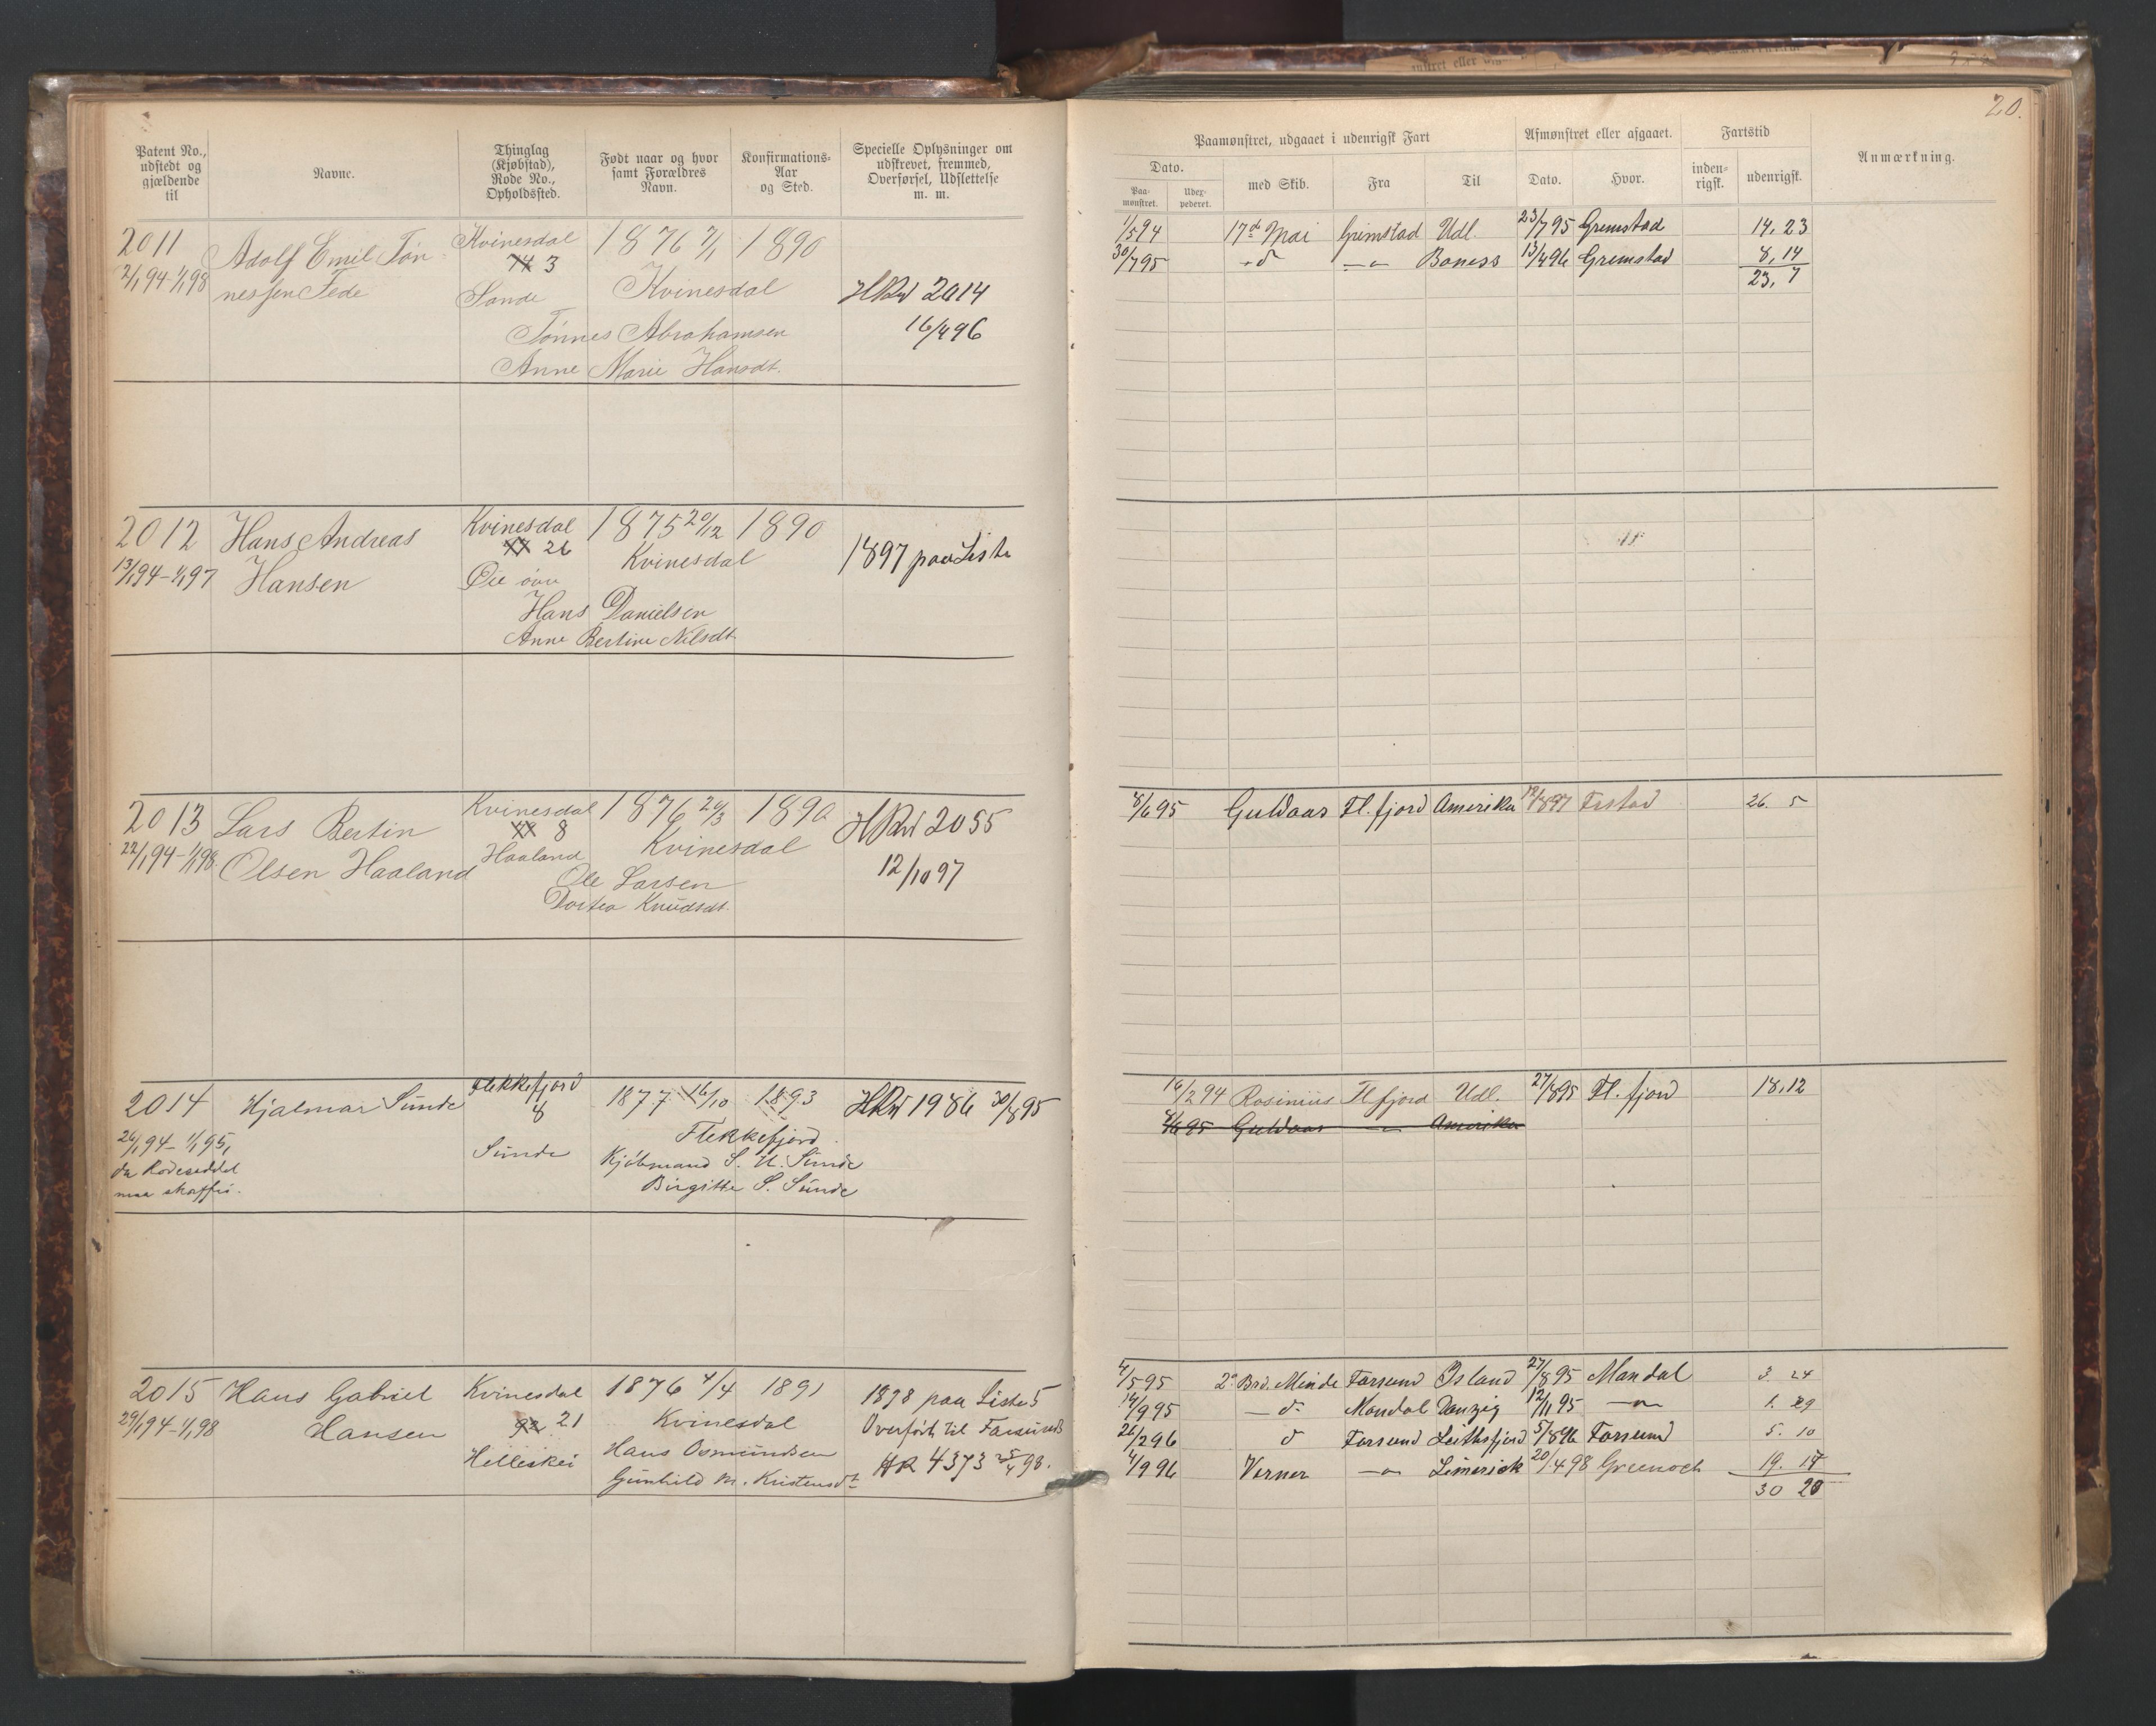 20.
Patent No., udstedt og gjældende til
Navne.
Thinglag (Kjøbstad), Rode No., Opholdssted.
Født naar og hvor samt Forældres Navn.
Konfirmations-Aar og Sted.
Specielle Oplysninger om udskrevet, fremmed, Overførsel, Udslettelse m. m.
Paamønstret, udgaaet i udenrigsk Fart
Afmønstret eller afgaaet.
Fartstid
Anmærkning.
Dato.
Paa-mønstret.
Udex-pederet.
med Skib.
Fra
Til
Dato.
Hvor.
inden-rigsk.
udenrigsk.
2011 Adolf Emil Tøn- Kvinesdal 1876 7/1 1890
2/1 94-1/1 98 nessen Fede 3 Kvinesdal
Sande HRul 2014
Tønnes Abrahamsen 16/4 96
Anne Marie Hansdt.
1/5 94 17de Mai Grimstad Udl. 23/7 95 Gremstad 14. 23
30/7 95 -d- -"- Boness 13/4 96 Gremstad 8, 14
23, 7
2012 Hans Andreas Kvinesdal 1875 20/12 1890
13/1 94-1/1 97 Hansen 26 Kvinesdal 1897 paa Liste
Øie øvre
Hans Danielsen
Anne Bertine Nilsdt.
2013 Lars Bertin Kvinesdal 1876 20/3 1890 HRul 2055
22/1 94-1/1 98 Olsen Haaland 8 Kvinesdal
Haaland 12/10 97
Ole Larsen
Dortea Knudsdt.
8/6 95 Guldaas Fl. fjord Amerika 12/8 97 26. 5
2014 Hjalmar Sunde Flekkefjord 1877 16/10 1893 HRul 1986 30/8 95
26/1 94-1/1 95, 8 Flekkefjord
da Rodeseddel Sunde Kjøbmand S. H. Sunde
maa skaffes. Birgitte S. Sunde
16/2 94 Rosinius Fl fjord Udl. 27/8 95 Fl. fjord 18, 12
8/6 95 Guldaas -"- Amerika
2015 Hans Gabriel Kvinesdal 1876 4/4 1891 1898 paa Liste 5
29/1 94-1/1 98 Hansen 92 21 Kvinesdal Overført til Farsunds
Helleskei Hans Osmundsen HR 4373 25/4 98.
Gunhild M. Kristensdt
4/5 95 2de Brd. Minde Farsund Island 27/8 95 Mandal 3. 24
14/9 95 -d- Mandal Danzig 12/11 95 -"- 1. 29
26/2 96 d Farsund Leithsfjord 5/8 96 Farsund 5. 10
4/9 96 Verner -"- Limerick 20/4 98 Greenoch 19. 17
30 20